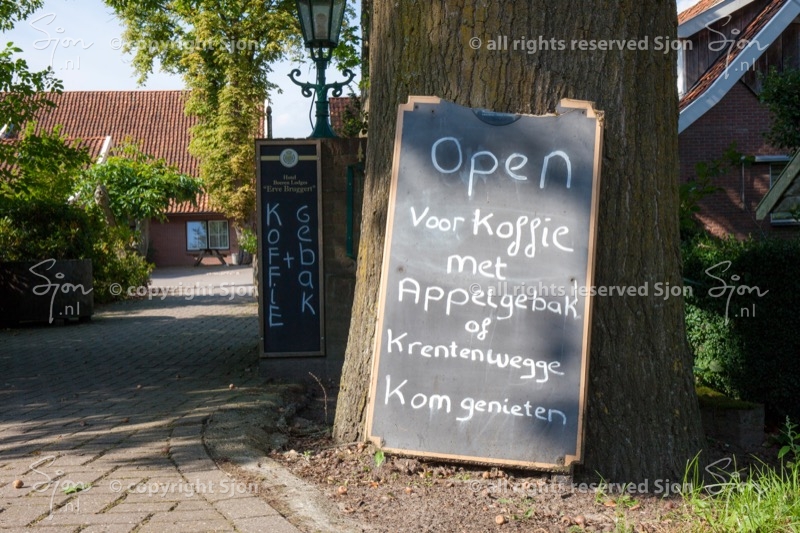 Open
Voor Koffie
met
Appelgebak
of
Krentenwegge
Kom genieten
Hotel
Dinner Lodges
"Erve Bruggert"
KOFFIE
+
Gebak
Sjon.nl
© copyright Sjon
© all rights reserved Sjon
Sjon.nl
© copyright Sjon
© all rights reserved Sjon
Sjon.nl
© copyright Sjon
© all rights reserved Sjon
Sjon.nl